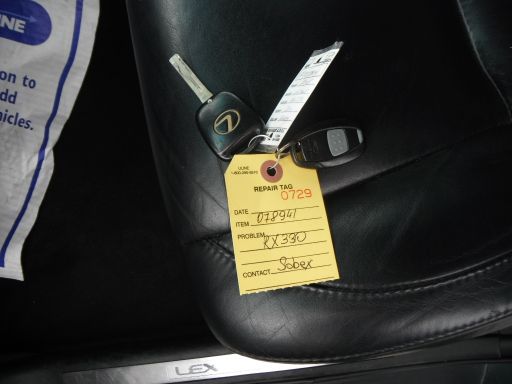 INE
on to
dd
icles.
ULINE
1-800-295-5510
REPAIR TAG
0729
DATE
ITEM 078941
PROBLEM RX330
CONTACT Sobex
LEX